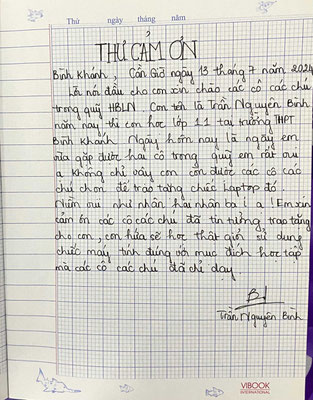 Thứ ngày tháng năm
THƯ CẢM ƠN
Bình Khánh, Cần Giờ ngày 13 tháng 7 năm 2024
Lời nói đầu cho con xin chào các cô các chú
trong quỹ HBLN. Con tên là Trần Nguyên Bình
năm nay thì con học lớp 11 tại trường THPT
Bình Khánh. Ngày hôm nay là ngày em
vừa gặp được hai cô trong quỹ em rất vui
ạ không chỉ vậy con còn được các cô các
chú chọn để trao tặng chiếc Laptop đó.
Niềm vui như nhân hai nhân ba i ạ! Em xin
cảm ơn các cô các chú đã tin tưởng trao tặng
cho con, con hứa sẽ học thật giỏi sử dụng
chiếc máy tính đúng với mục đích học tập
mà các cô các chú đã chỉ dạy.
Trần Nguyên Bình
VIBOOK
INTERNATIONAL